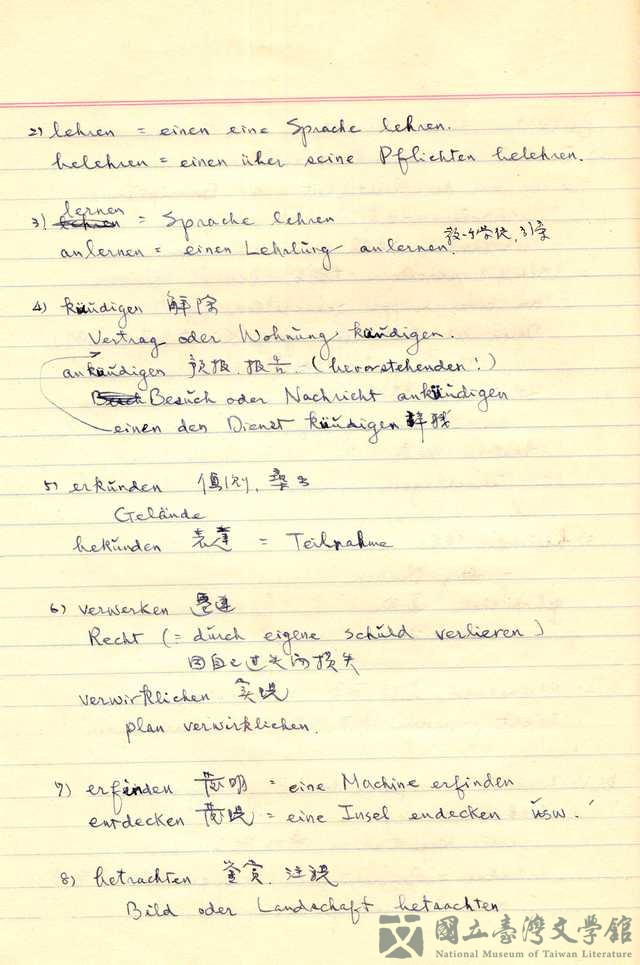 2) lehren = einen eine Sprache lehren.
belehren = einen über seine Pflichten belehren.
3) lernen = Sprache lehren
anlernen = einen Lehrlung anlernen.
4) kündigen 解除
Vertrag oder Wohnung kündigen.
ankündigen 預報. 報告. (bevorstehenden!)
Besuch oder Nachricht ankündigen
einen den Dienst kündigen 辞職
5) erkunden
Gelände
bekunden 表達 = Teilnahme
6) verwerken
Recht (= durch eigene schuld verlieren)
因自己过失而損失
verwirklichen 実现
plan verwirklichen.
7) erfinden 发明 = eine Machine erfinden
entdecken 发现 = eine Insel endecken usw.
8) betrachten 鉴賞. 注視
Bild oder Landschaft betrachten
國立臺灣文學館
National Museum of Taiwan Literature